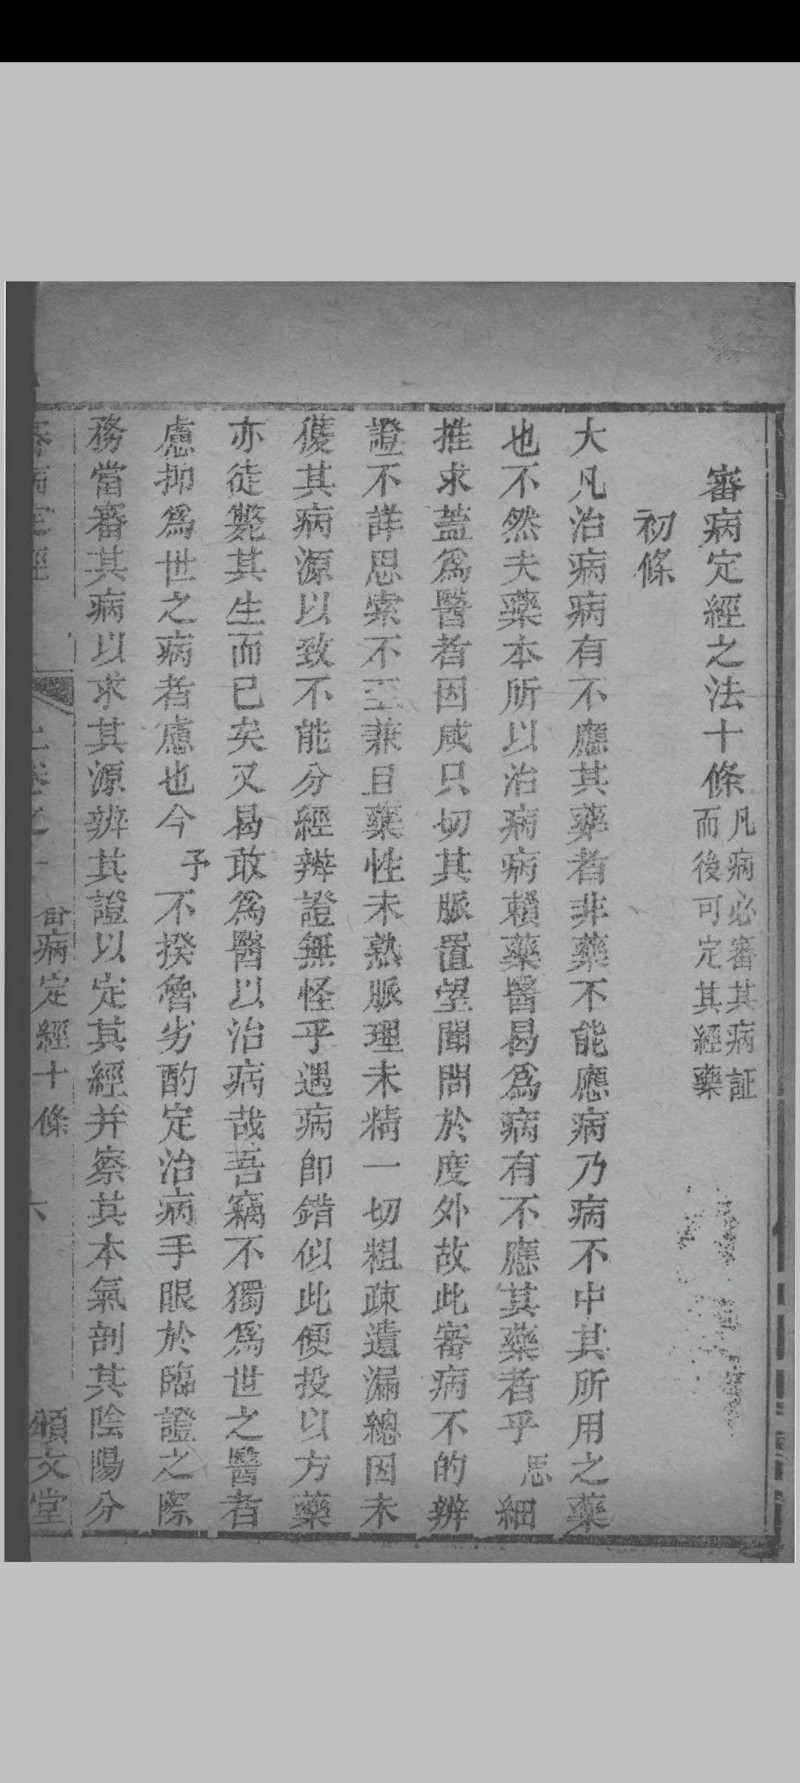 審病定經之法十條
凡病必審其病証
而後可定其經藥
初條
大凡治病病有不應其藥者非藥不能應病乃病不中其所用之藥
也不然夫藥本所以治病病賴藥醫曷為病有不應其藥者乎思細
推求蓋為醫者因咸只切其脈置望聞問於度外故此審病不的辨
證不詳思索不至兼且藥性未熟脈理未精一切粗疎遺漏總因未
獲其病源以致不能分經辨證無怪乎遇病即錯似此便投以方藥
亦徒斃其生而已矣又曷敢為醫以治病哉吾竊不獨為世之醫者
慮抑為世之病者慮也今予不揆魯劣酌定治病手眼於臨證之際
務當審其病以求其源辨其證以定其經并察其本氣剖其陰陽分
審病定經
上卷之一
審病定經十條
六
文堂